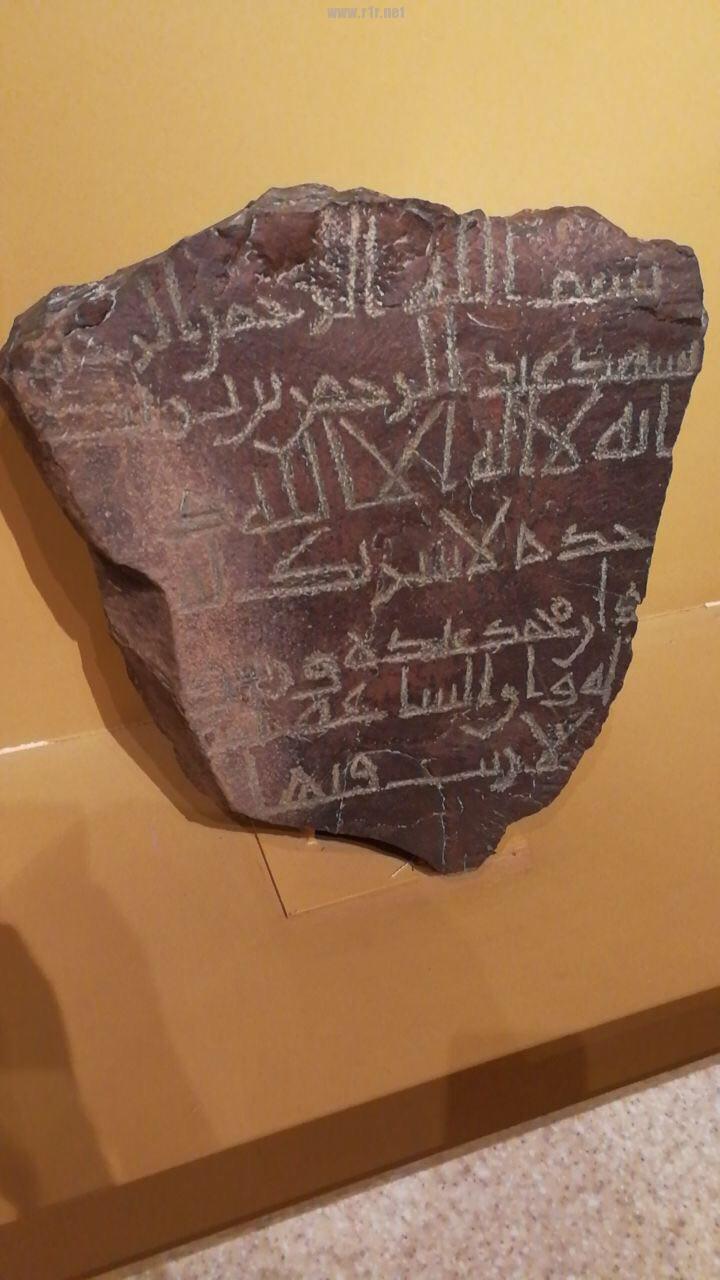 www.r1r.net
بسم الله الرحمن الرحيم
شهد عبد الرحمن بن
بانه لا اله الا الله و
حده لا شريك له
وان محمد عبده ورسو
له وان الساعه اتيه
لا ريب فيها